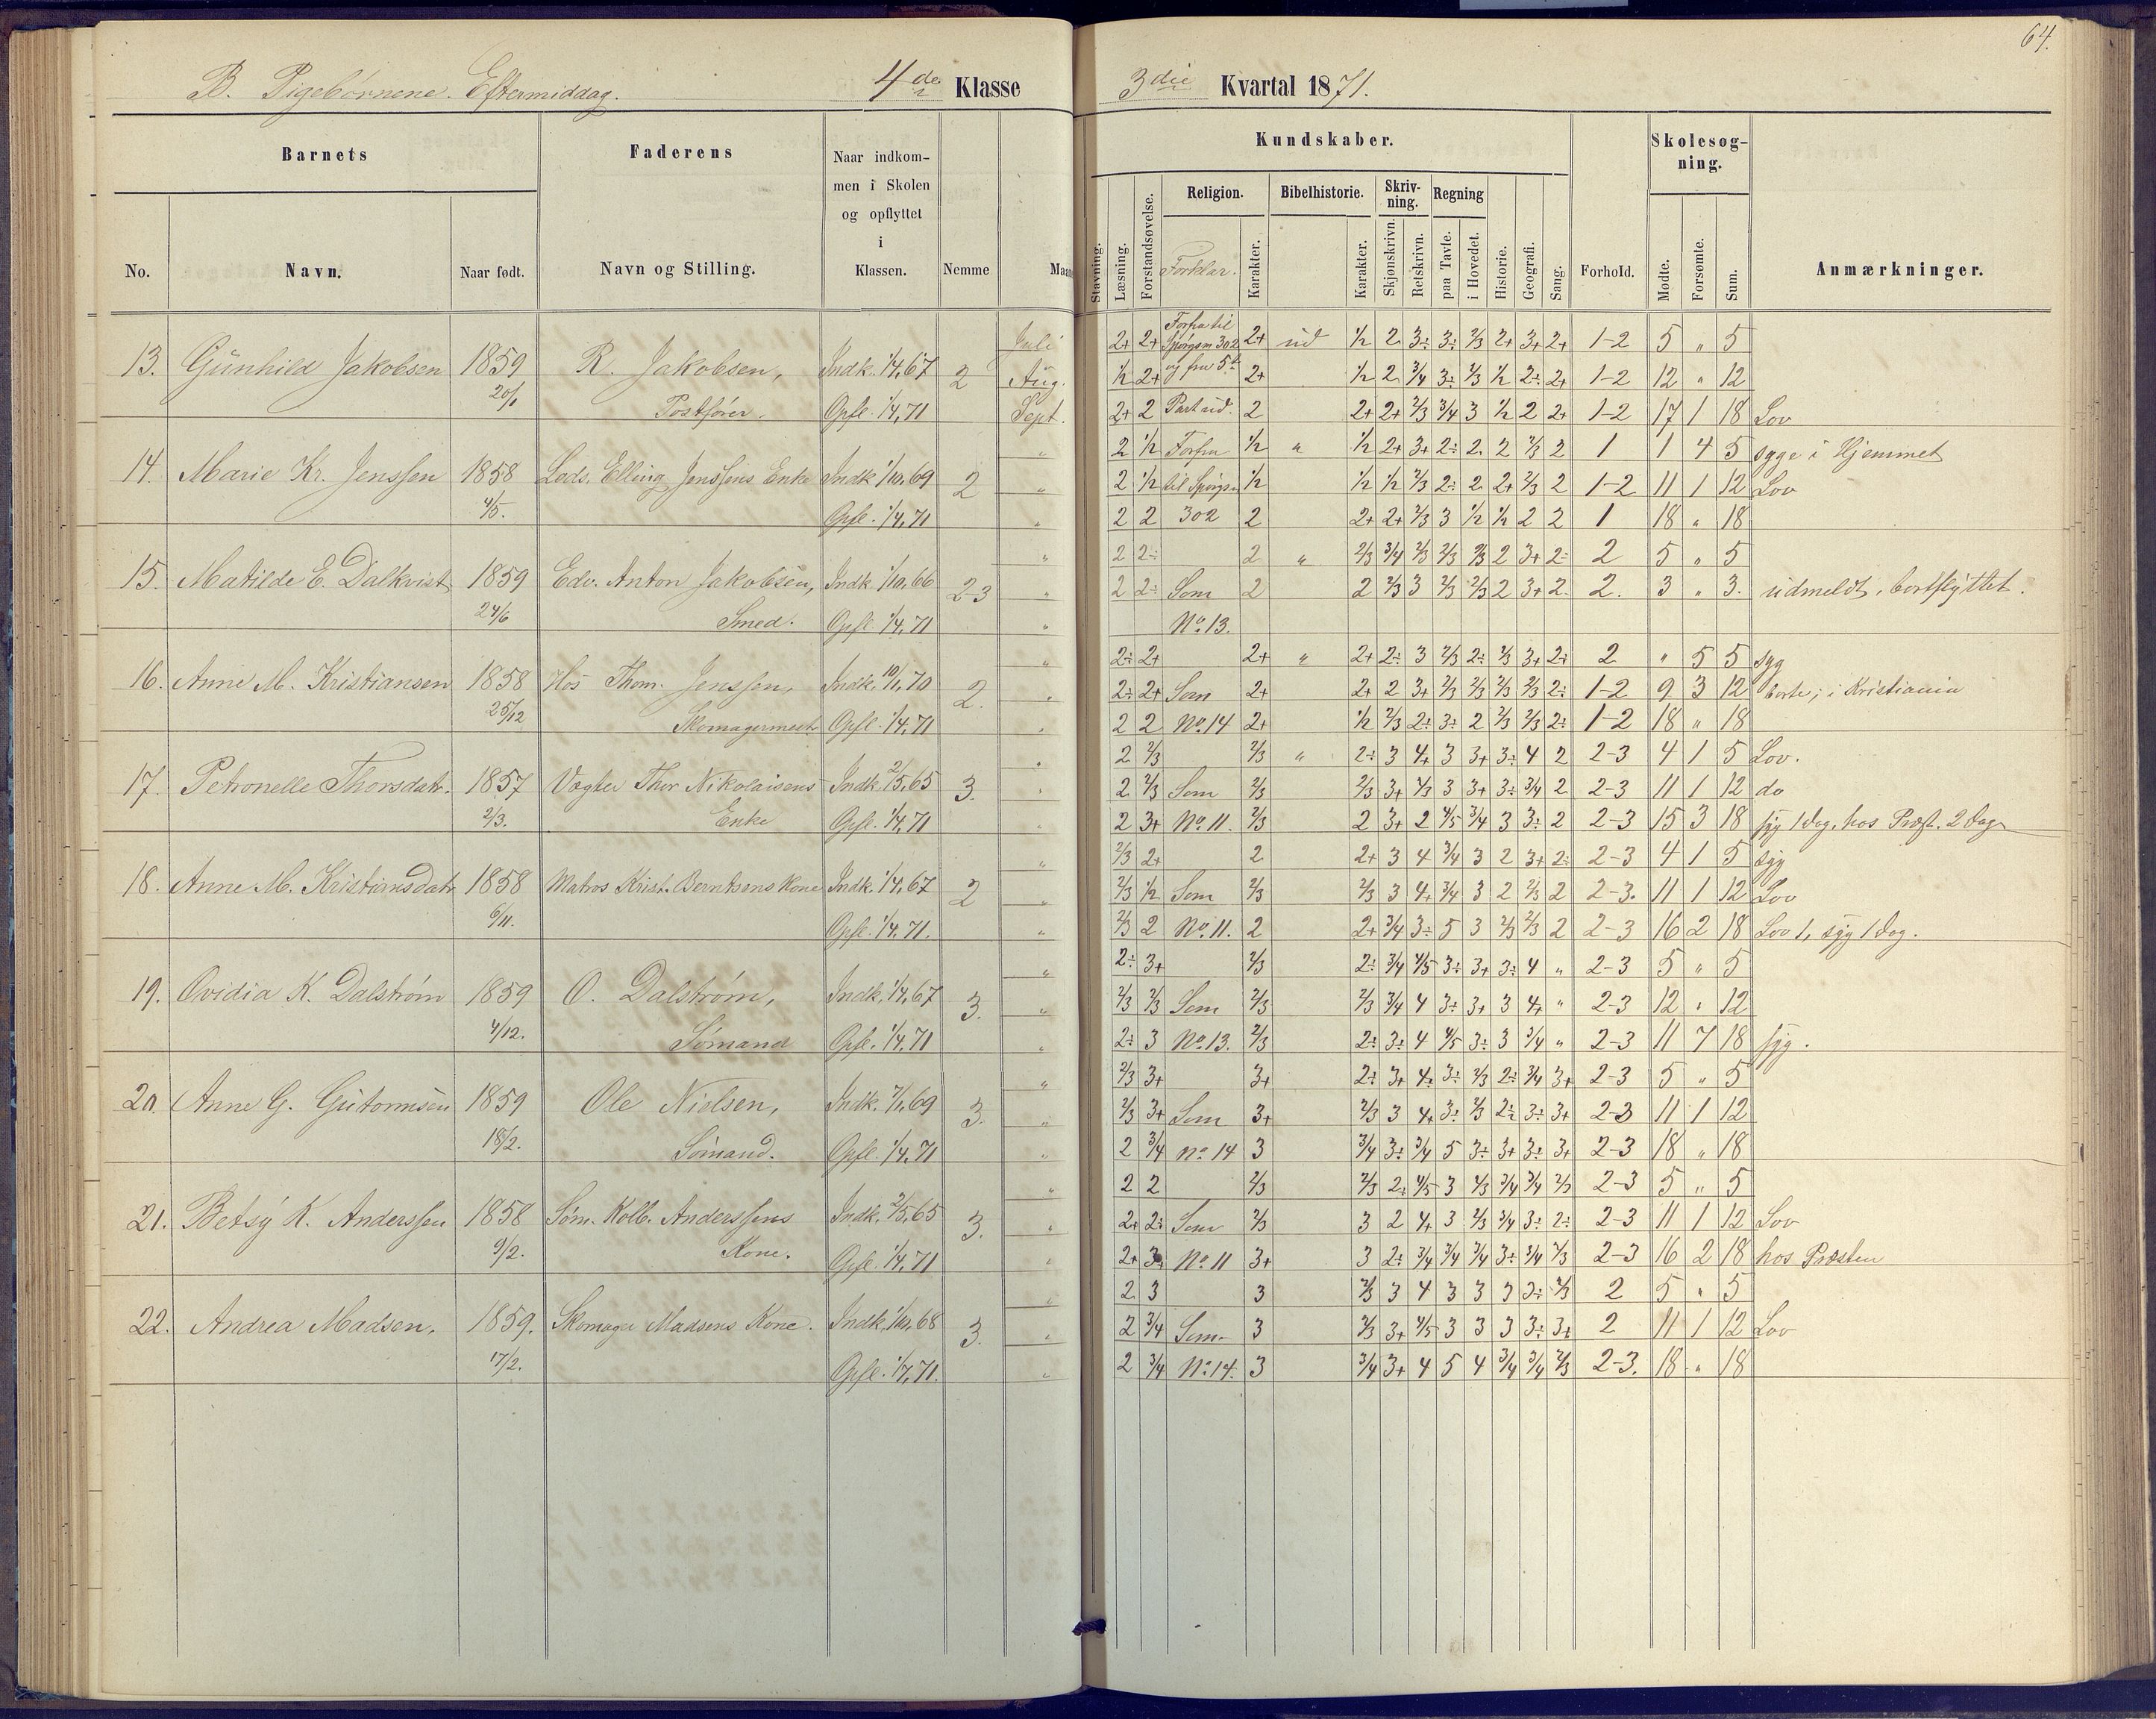 64.
B. Pigebørnene. Eftermiddag. 4de Klasse 3die Kvartal 1871.
Barnets Faderens Naar indkommen i Skolen og opflyttet i Klassen. Nemme Kundskaber. Forhold. Skolesøgning. Anmærkninger.
No. Navn. Naar født. Navn og Stilling. Maan
Stavning. Læsning. Forstandsøvelse. Religion. Forklar. Karakter. Bibelhistorie. Karakter. Skrivning. Skjønskrivn. Retskrivn. Regning paa Tavle. i Hovedet. Historie. Geografi. Sang. Mødte. Forsømte. Sum.
13. Gunhild Jakobsen 1859 20/1 R. Jakobsen, Postfører. Indk. 1/4,67 Opfl. 1/4,71 2
Juli 2+ 2+ Forfra til Spørgsm 302 2+ ud 1/2 2 3÷ 3÷ 2/3 2+ 3+ 2+ 1-2 5 " 5
Aug. 1/2 2+ og fra 5te 2+ 1/2 2 3/4 3÷ 2/3 1/2 2÷ 2+ 1-2 12 " 12
Sept. 2+ 2 Part ud. 2 2+ 2+ 2/3 3/4 3 1/2 2 2+ 1-2 17 1 18 Lov
14. Marie Kr. Jenssen 1858 4/5. Lods. Elling Jenssens Enke Indk 1/10,69 Opfl. 1/4,71 2
" 2 1/2 Forfra 1/2 " 1/2 2+ 3+ 2÷ 2 2 2/3 2 1 1 4 5 syge i Hjemmet
" 2 1/2 til Spørgsm 1/2 1/2 1/2 2/3 2÷ 2 2+ 2/3 2 1-2 11 1 12 Lov
" 2 2 302 2 2+ 2+ 2/3 3 1/2 1/2 2 2 1 18 " 18
15. Matilde E. Dalkvist 1859 24/6 Edv. Anton Jakobsen, Smed. Indk 1/10,66 Opfl. 1/4,71 2-3
" 2 2÷ 2 " 2/3 3/4 2/3 2/3 2/3 2 3+ 2÷ 2 5 " 5
" 2 2÷ Som 2 2 2/3 3 2/3 2/3 2 3+ 2. 2. 3 " 3. udmeldt, bortflyttet.
" No. 13.
16. Anne M. Kristiansen 1858 25/12 Hos Thom. Jenssen, Skomagermest Indk. 10/1,70 Opfl. 1/4,71 2.
" 2÷ 2+ 2+ " 2+ 2÷ 3 2/3 2÷ 2/3 3+ 2÷ 2 " 5 5 syg
" 2÷ 2+ Som 2+ 2+ 2 3+ 2/3 2/3 2/3 2/3 2÷ 1-2 9 3 12 borte; i Kristiania
" 2 2 No. 14 2+ 1/2 2/3 2÷ 3÷ 2 2/3 2/3 2÷ 1-2 18 " 18
17. Petronelle Thorsdatr. 1857 2/3. Vægter Thor Nikolaisens Enke Indk 2/5,65 Opfl. 1/4,71 3.
" 2 2/3 2/3 " 2÷ 3 4+ 3 3+ 3÷ 4 2 2-3 4 1 5 Lov.
" 2 2/3 Som 2/3 2/3 3+ 2/3 3 3+ 3÷ 3/4 2 2-3 11 1 12 do
" 2 3+ No. 11. 2/3 2 3+ 2 4/5 3/4 3 3÷ 2 2-3 15 3 18 syg 1 dag, hos Præst. 2 dage
18. Anne M. Kristiansdatr 1858 6/11. Matros Krist. Berntsens Kone Indk. 1/4,67 Opfl. 1/4,71. 2
" 2/3 2+ 2 2+ 3 4 3/4 3 2 3+ 2÷ 2-3 4 1 5 syg
" 2/3 1/2 Som 2/3 2/3 3 4+ 3/4 3 2 2/3 2 2-3. 11 1 12 Lov
" 2/3 2 No. 11. 2 2+ 3/4 3÷ 5 3 2/3 2/3 2 2-3 16 2 18 Lov 1, syg 1 dag.
19. Ovidia K. Dalstrøm 1859 4/12. O. Dalstrøm, Sømand Indk. 1/4,67 Opfl. 1/4,71 3.
" 2÷ 3+ 2/3 2÷ 3/4 4/5 3÷ 3+ 3÷ 4 " 2-3 5 " 5
" 2/3 2/3 Som 2/3 2/3 3/4 4 3÷ 3+ 3 4+ " 2-3 12 " 12
" 2÷ 3 No. 13. 2/3 2÷ 3÷ 4 4/5 3÷ 3 3/4 " 2-3 11 7 18 syg.
20. Anne G. Gutormsen 1859 18/2. Ole Nielsen, Sømand. Indk. 7/1,69 Opfl. 1/4,71 3.
" 2/3 3+ 3+ 2÷ 3+ 4÷ 3÷ 2/3 2÷ 3/4 3+ 2-3 5 " 5
" 2/3 3+ Som 3+ 2/3 3 4+ 3÷ 2/3 2÷ 3÷ 3+ 2-3 11 1 12
" 2 3/4 No. 14 3 3/4 3÷ 3/4 5 3÷ 3+ 3÷ 3+ 2-3 18 " 18
21. Betsy K. Anderssen 1858 9/2. Søm. Kolb. Anderssens Kone. Indk. 2/5,65 Opfl. 1/4,71 3.
" 2 2 2/3 2/3 2÷ 4/5 3 2/3 3/4 3/4 2/3 2-3 5 " 5
" 2+ 2÷ Som 2/3 3 2 4+ 3 2/3 3/4 3÷ 2÷ 2-3 11 1 12 Lov
" 2+ 3 No. 11 3+ 3 2÷ 3/4 3/4 3/4 3÷ 3/4 2/3 2-3 16 2 18 hos Præsten
22. Andrea Madsen. 1859. 17/2. Skomager Madsens Kone. Indk. 1/10,68 Opfl. 1/7,71. 3.
" 2 3 3 2/3 3 4 3 3 3 3÷ 2/3 2 5 " 5
" 2 3/4 Som 3 2/3 3+ 4/5 3 3 3 3÷ 3+ 2 11 1 12 Lov
" 2 3/4 No. 14. 3 3/4 3+ 4 5 4 3/4 3/4 2/3 2-3. 18 " 18